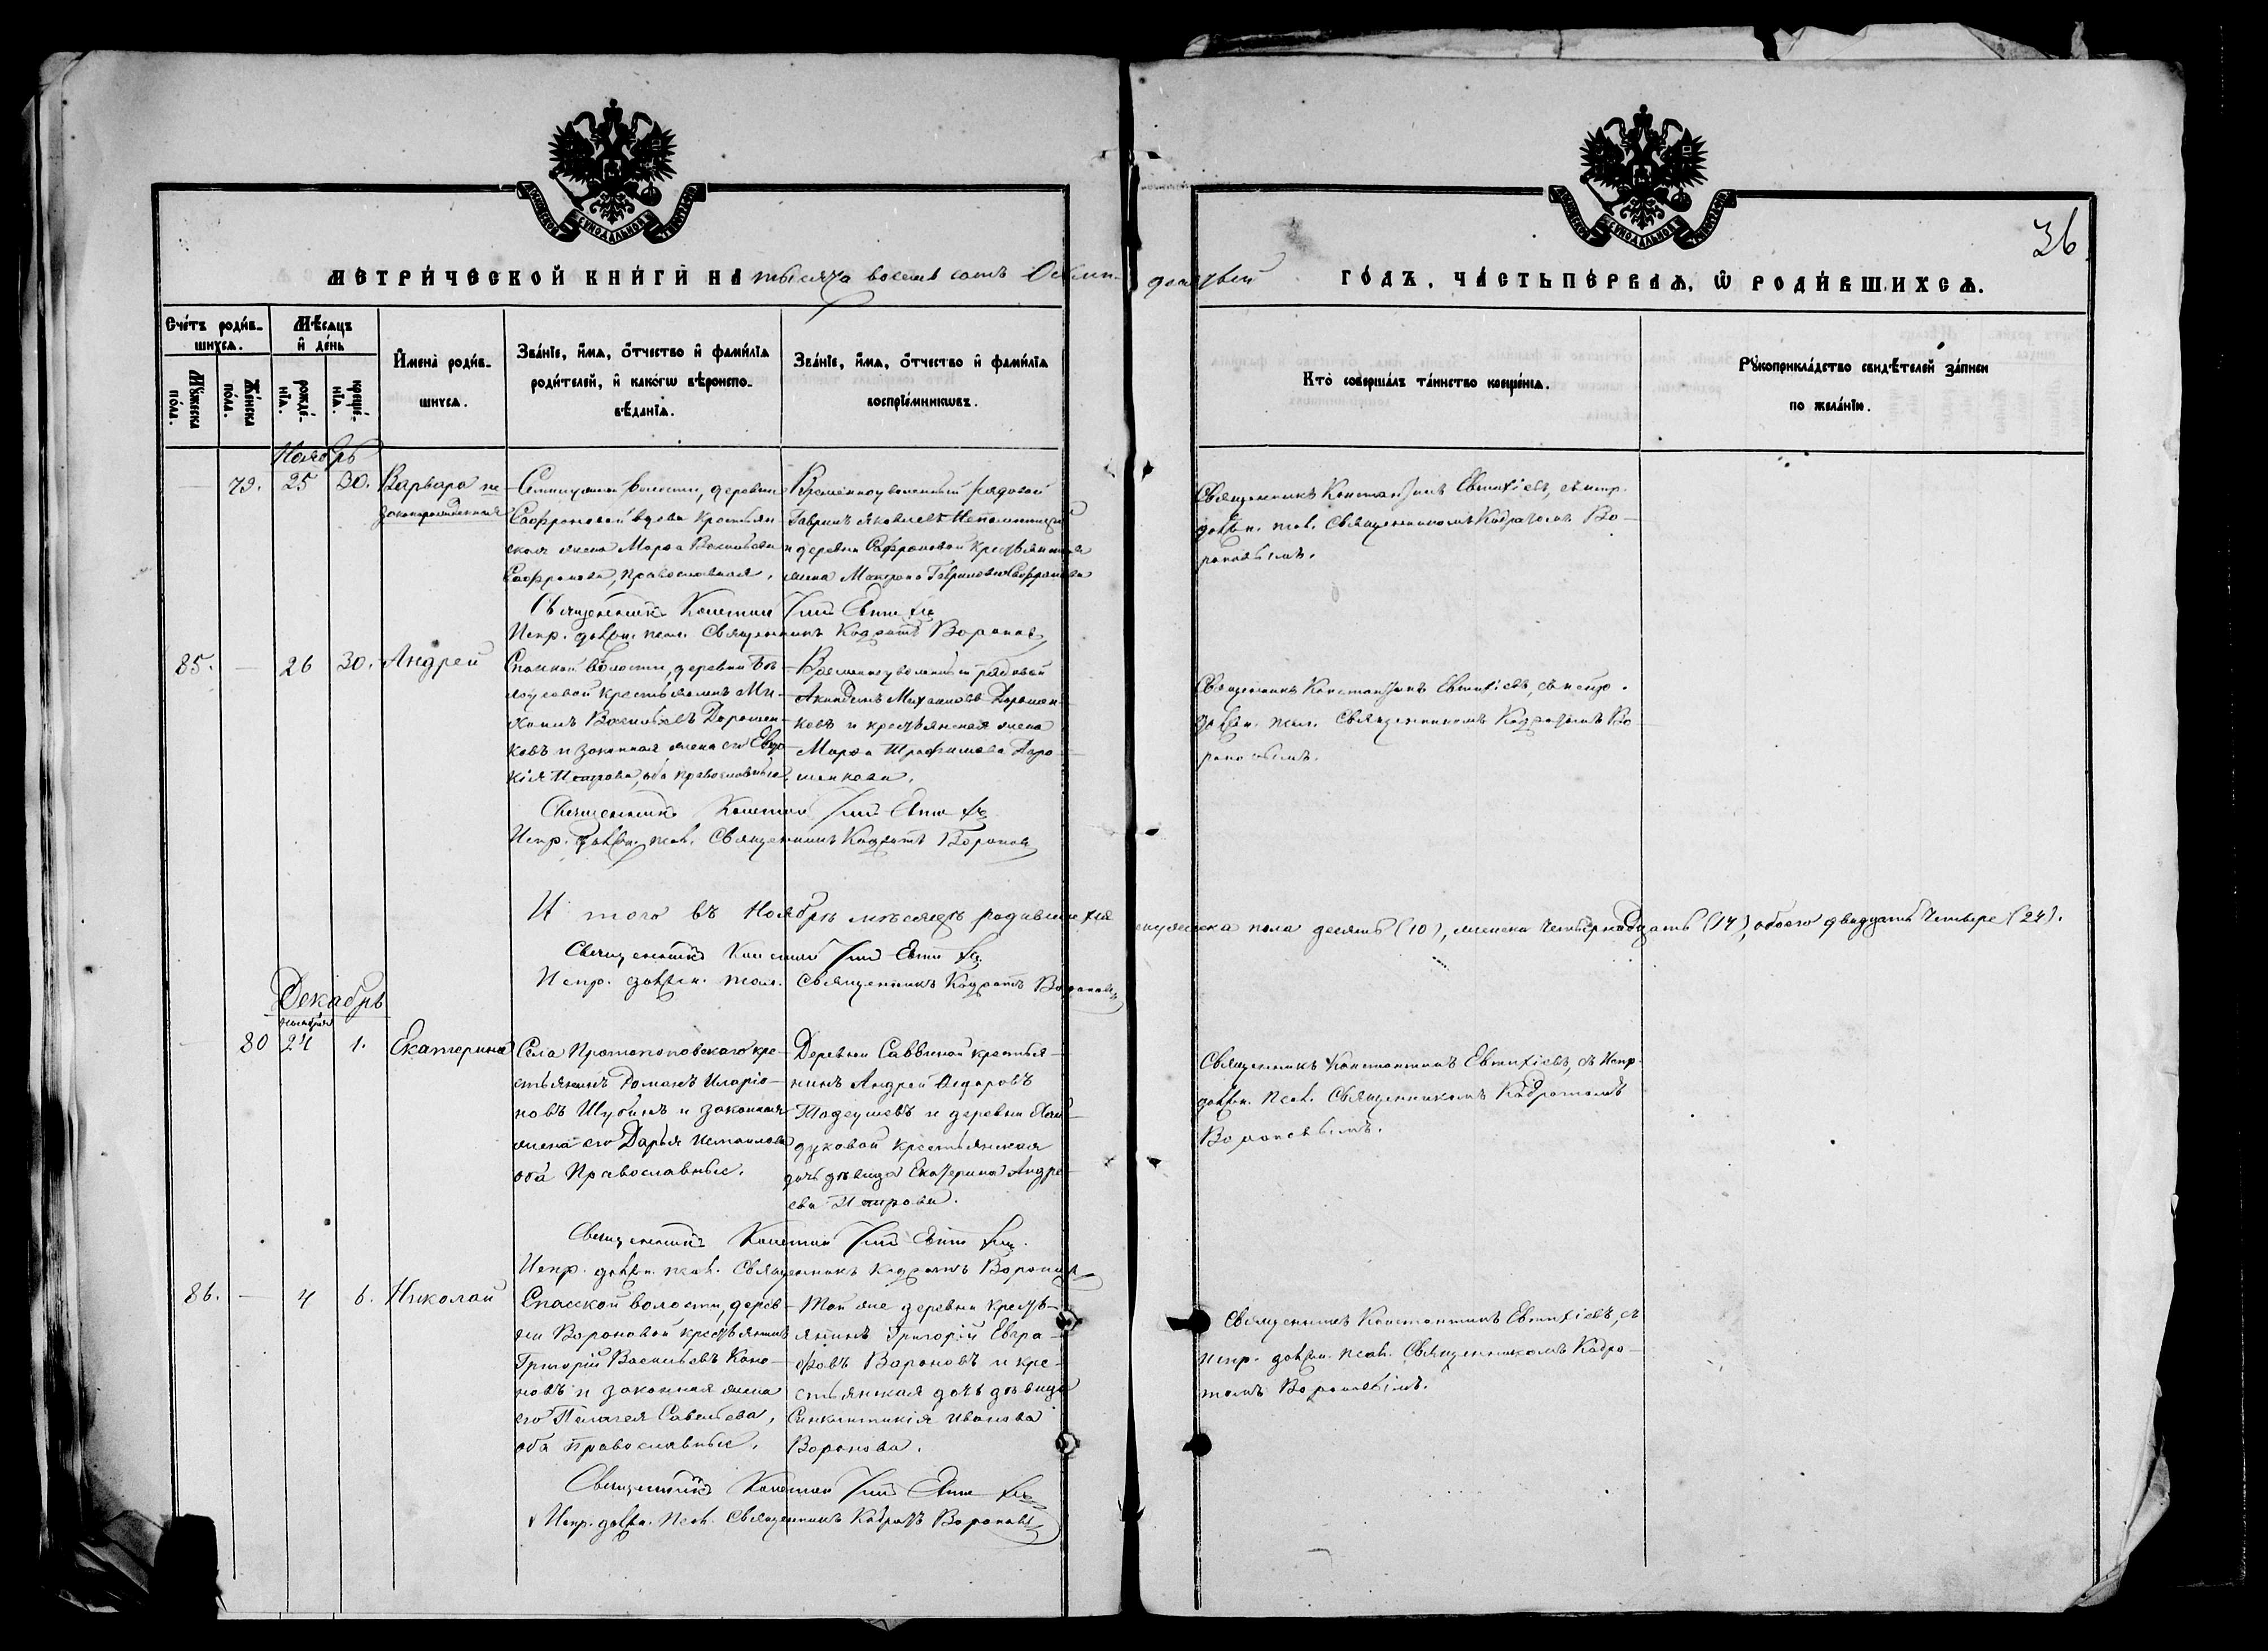 36
МЕТРИЧЕСКОЙ КНИГИ НА тысяча восемь сотъ Осмидесятый ГОДЪ, ЧАСТЬ ПЕРВАЯ, Ѡ РОДИВШИХСЯ.
Счетъ родившихся.
Мужеска пола.
Женска пола.
Мѣсяцъ и день
рожденія.
крещенія.
Имена родившихся.
Званіе, имя, отчество и фамилія
родителей, и какогѡ вѣроиспо-
вѣданія.
Званіе, имя, отчество и фамилія
воспріемникѡвъ.
Кто совершалъ таинство крещенія.
Рукоприкладство свидѣтелей записи
по желанію.
Ноябрь
79. 25 30. Варвара не-
законнорожденная
волости, деревни
Сафроновой вдова крестьян-
ская жена Марѳа
Сафронова, православная.
Временноуволенный рядовой
Гавриилъ Яковлевъ
и деревни Сафроновой крестьянская
жена Матрона Гаврилова Сафронова
Священникъ Константинъ Евтихіевъ, съ испр.
должн. псал. Священникомъ Кодратомъ Во-
роновымъ.
Священникъ Константинъ Евтихіевъ
Испр. должн. псал. Священникъ Кодратъ Вороновъ
85. — 26 30. Андрей
Спасской волости, деревни
крестьянинъ Ми-
хаилъ Васильевъ Дорошен-
ковъ и законная жена его Евдо-
кія Петрова, оба православные.
Временноуволенный рядовой
Акиндинъ Михайловъ Дорошен-
ковъ и крестьянская жена
Марѳа Трофимова Доро-
шенкова.
Священникъ Константинъ Евтихіевъ, съ испр.
должн. псал. Священникомъ Кодратомъ Во-
роновымъ.
Священникъ Константинъ Евтихіевъ
Испр. должн. псал. Священникъ Кодратъ Вороновъ
И того въ Ноябрѣ мѣсяцѣ родившихся мужеска пола десять (10), женска четырнадцать (14), обоего двадцать четыре (24).
Священникъ Константинъ Евтихіевъ
Испр. должн. псал. Священникъ Кодратъ Вороновъ
Декабрь
ноября
80 24 1. Екатерина
Села Протопоповскаго кре-
стьянинъ Романъ Иларіо-
новъ Шубинъ и законная
жена его Дарья Измаилова
оба Православные.
Деревни Саввиной крестья-
нинъ Андрей Ѳедоровъ
и деревни
дуковой крестьянская
дочь дѣвица Екатерина Андре-
ева Петрова.
Священникъ Константинъ Евтихіевъ, съ Испр.
должн. Псал. Священникомъ Кодратомъ
Вороновымъ.
Священникъ Константинъ Евтихіевъ
Испр. должн. псал. Священникъ Кодратъ Вороновъ
86. — 4 6. Николай
Спасской волости, дерев-
ни Вороновой крестьянинъ
Григорій Васильевъ Коно-
новъ и законная жена
его Пелагея Савельева,
оба Православные.
Той же деревни кресть-
янинъ Григорій Евгра-
фовъ Вороновъ и кре-
стьянская дочь дѣвица
Синклитикія Иванова
Воронова.
Священникъ Константинъ Евтихіевъ, съ
испр. должн. псал. Священникомъ Кодра-
томъ Вороновымъ.
Священникъ Константинъ Евтихіевъ
Испр. должн. Псал. Священникъ Кодратъ Вороновъ